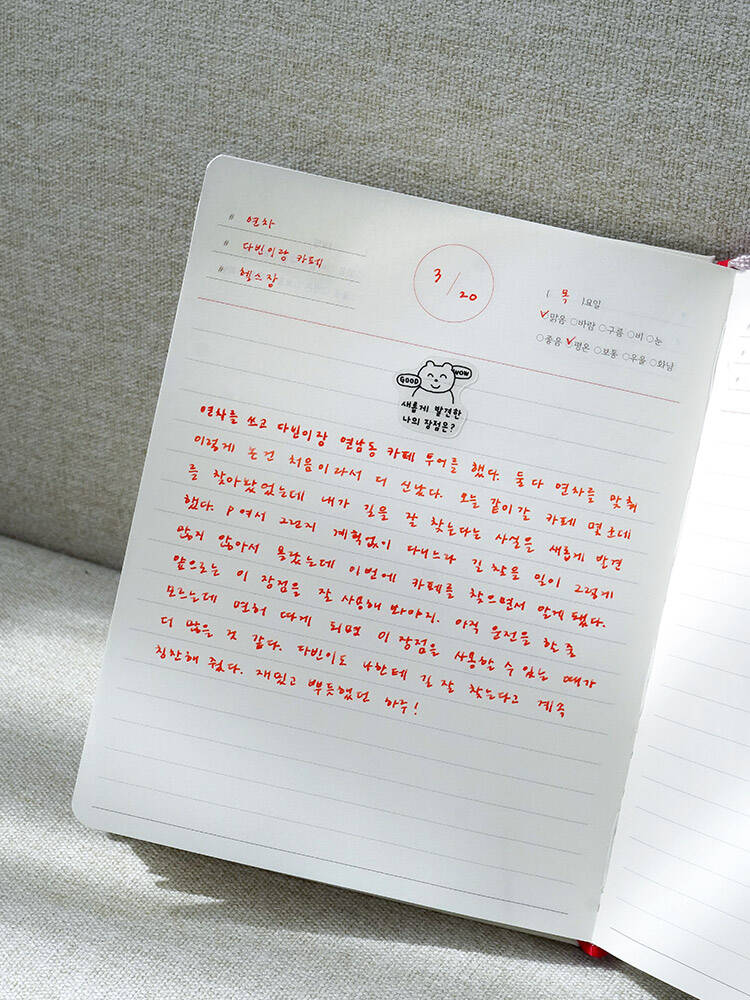 # 연차
# 다빈이랑 카페
# 헬스장
3/20
( 목 )요일
✓맑음 ○바람 ○구름 ○비 ○눈
○좋음 ✓평온 ○보통 ○우울 ○화남
GOOD WOW
새롭게 발견한
나의 장점은?
연차를 쓰고 다빈이랑 연남동 카페 투어를 했다. 둘다 연차를 맞춰
이렇게 논건 처음이라서 더 신났다. 오늘 같이 갈 카페 몇 군데
를 찾아놨었는데 내가 길을 잘 찾는다는 사실을 새롭게 발견
했다. P여서 그런지 계획없이 다니느라 길 찾을 일이 그렇게
많지 않아서 몰랐는데 이번에 카페를 찾으면서 알게 됐다.
앞으로는 이 장점을 잘 사용해 봐야지. 아직 운전을 할 줄
모르는데 면허 따게 되면 이 장점을 사용할 수 있는 때가
더 많을 것 같다. 다빈이도 나한테 길 잘 찾는다고 계속
칭찬해 줬다. 재밌고 뿌듯했던 하루!